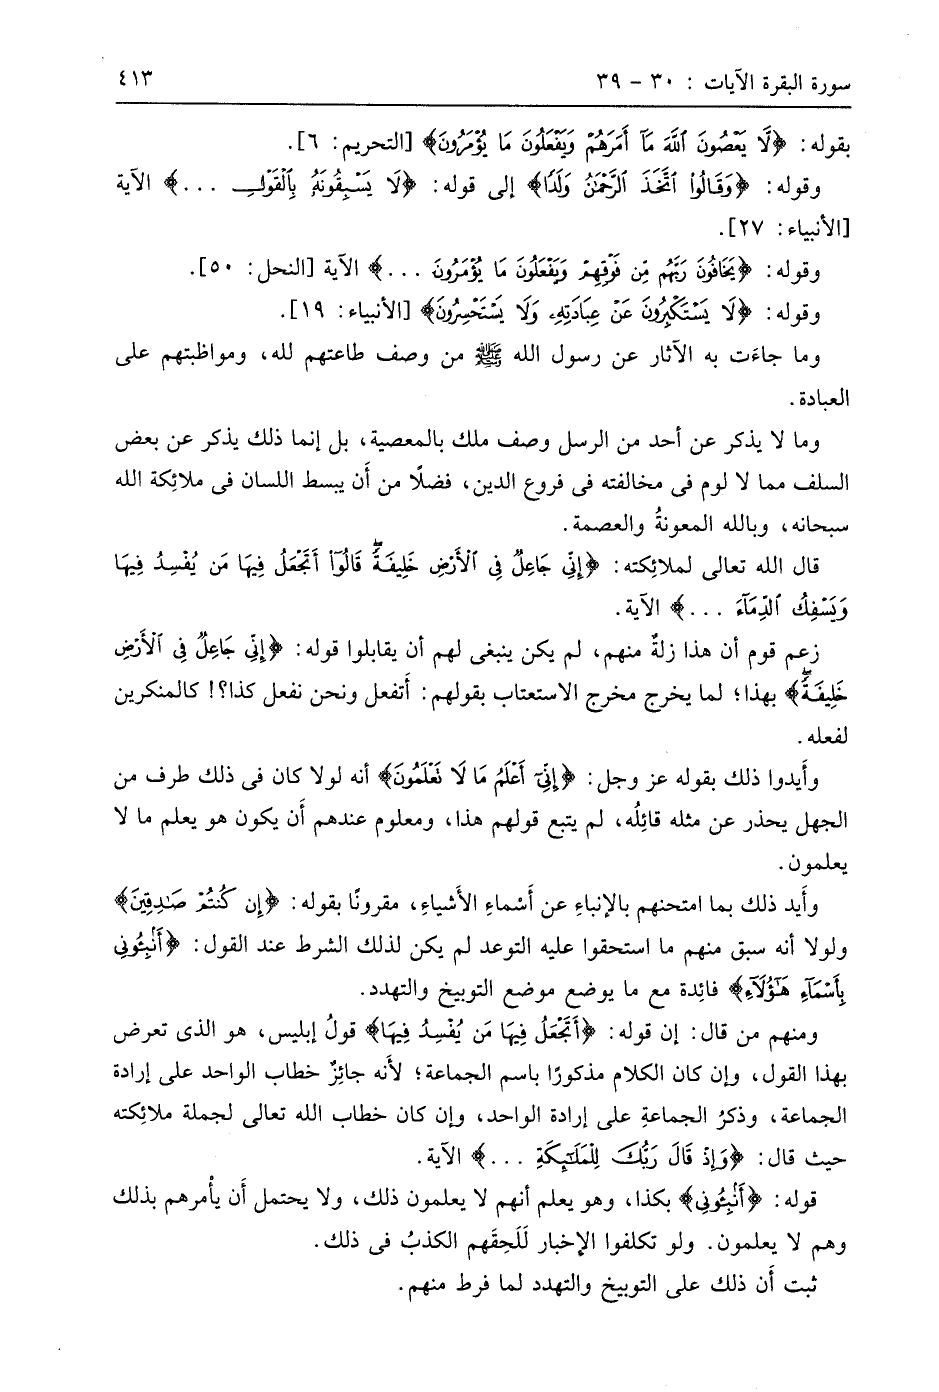 سورة البقرة الآيات : ٣٠ - ٣٩ ٤١٣
بقوله: ﴿لَّا يَعْصُونَ ٱللَّهَ مَآ أَمَرَهُمْ وَيَفْعَلُونَ مَا يُؤْمَرُونَ﴾ [التحريم: ٦].
وقوله: ﴿وَقَالُوا۟ ٱتَّخَذَ ٱلرَّحْمَٰنُ وَلَدًا﴾ إلى قوله: ﴿لَا يَسْبِقُونَهُۥ بِٱلْقَوْلِ ...﴾ الآية
[الأنبياء: ٢٧].
وقوله: ﴿يَخَافُونَ رَبَّهُم مِّن فَوْقِهِمْ وَيَفْعَلُونَ مَا يُؤْمَرُونَ ...﴾ الآية [النحل: ٥٠].
وقوله: ﴿لَا يَسْتَكْبِرُونَ عَنْ عِبَادَتِهِۦ وَلَا يَسْتَحْسِرُونَ﴾ [الأنبياء: ١٩].
وما جاءَت به الآثار عن رسول الله ﷺ من وصف طاعتهم لله، ومواظبتهم على
العبادة.
وما لا يذكر عن أحد من الرسل وصف ملك بالمعصية، بل إنما ذلك يذكر عن بعض
السلف مما لا لوم فى مخالفته فى فروع الدين، فضلًا من أَن يبسط اللسان فى ملائِكة الله
سبحانه، وبالله المعونةُ والعصمة.
قال الله تعالى لملائِكته: ﴿إِنِّى جَاعِلٌ فِى ٱلْأَرْضِ خَلِيفَةً ۖ قَالُوٓا۟ أَتَجْعَلُ فِيهَا مَن يُفْسِدُ فِيهَا
وَيَسْفِكُ ٱلدِّمَآءَ ...﴾ الآية.
زعم قوم أن هذا زلةٌ منهم، لم يكن ينبغى لهم أن يقابلوا قوله: ﴿إِنِّى جَاعِلٌ فِى ٱلْأَرْضِ
خَلِيفَةً ۖ﴾ بهذا؛ لما يخرج مخرج الاستعتاب بقولهم: أَتفعل ونحن نفعل كذا؟! كالمنكرين
لفعله.
وأَيدوا ذلك بقوله عز وجل: ﴿إِنِّىٓ أَعْلَمُ مَا لَا تَعْلَمُونَ﴾ أنه لولا كان فى ذلك طرف من
الجهل يحذر عن مثله قائِلُه، لم يتبع قولهم هذا، ومعلوم عندهم أَن يكون هو يعلم ما لا
يعلمون.
وأَيد ذلك بما امتحنهم بالإنباءِ عن أَسْماءِ الأَشياءِ، مقرونًا بقوله: ﴿إِن كُنتُمْ صَٰدِقِينَ﴾
ولولا أنه سبق منهم ما استحقوا عليه التوعد لم يكن لذلك الشرط عند القول: ﴿أَنۢبِـُٔونِى
بِأَسْمَآءِ هَٰٓؤُلَآءِ﴾ فائِدة مع ما يوضع موضع التوبيخ والتهدد.
ومنهم من قال: إن قوله: ﴿أَتَجْعَلُ فِيهَا مَن يُفْسِدُ فِيهَا﴾ قولُ إبليس، هو الذى تعرض
بهذا القول، وإن كان الكلام مذكورًا باسم الجماعة؛ لأنه جائِزٌ خطاب الواحد على إرادة
الجماعة، وذكرُ الجماعةِ على إرادة الواحد، وإن كان خطاب الله تعالى لجملة ملائِكته
حيث قال: ﴿وَإِذْ قَالَ رَبُّكَ لِلْمَلَٰٓئِكَةِ ...﴾ الآية.
قوله: ﴿أَنۢبِـُٔونِى﴾ بكذا، وهو يعلم أنهم لا يعلمون ذلك، ولا يحتمل أَن يأْمرهم بذلك
وهم لا يعلمون. ولو تكلفوا الإخبار لَلَحِقَهم الكذبُ فى ذلك.
ثبت أَن ذلك على التوبيخ والتهدد لما فرط منهم.